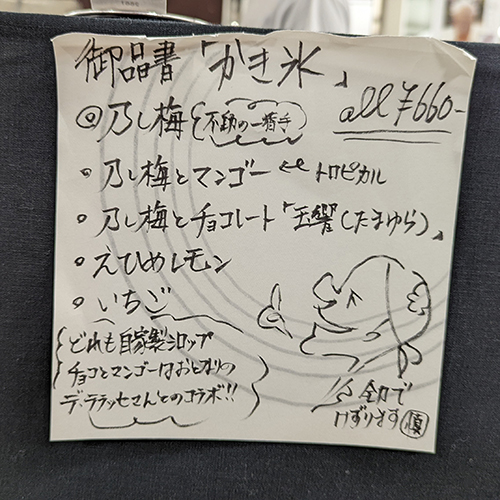 御品書「かき氷」
all ¥660-
◎乃し梅 不動の一番手
・乃し梅とマンゴー ← トロピカル
・乃し梅とチョコレート「玉響(たまゆら)」
・えひめレモン
・いちご
どれも自家製シロップ
チョコとマンゴーはおとなりの
デ、ララッセさんとのコラボ!!
全力で
けずります